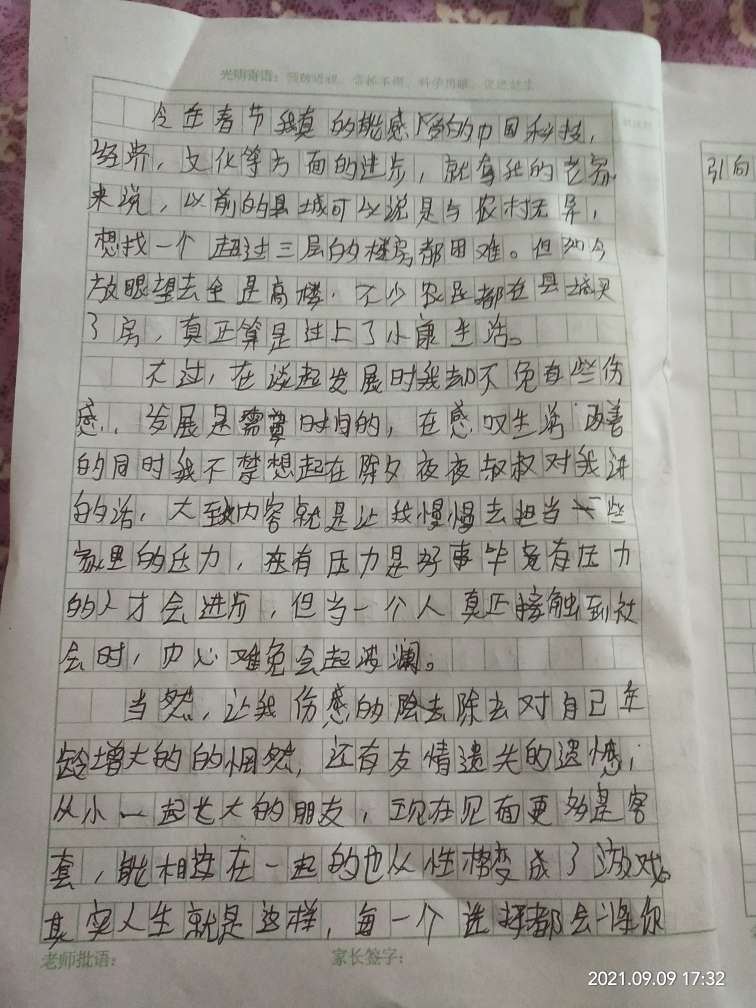 光明寄语：预防近视，
今年春节我真的能感受的中国科技，
经济，文化等方面的进步，就拿我的老家
来说，以前的县城可以说是与农村无异，
想找一个超过三层的楼房都困难。但如今
放眼望去全是高楼，不少农民都在县城买
了房，真正算是过上了小康生活。
不过，在谈起发展时我却不免有些伤
感，发展是需要时间的，在感叹生活改善
的同时我不禁想起在除夕夜夜叔叔对我讲
的话，大致内容就是让我慢慢去担当一些
家里的压力，在有压力是好事毕竟有压力
的人才会进步，但当一个人真正接触到社
会时，内心难免会起波澜。
当然，让我伤感的除去除去对自己年
龄增大的的惘然，还有友情遗失的遗憾，
从小一起长大的朋友，现在见面更多是客
套，能相连在一起的也从性格变成了游戏。
其实人生就是这样，每一个选择都会让你
老师批语：
家长签字：
引向
2021.09.09 17:32